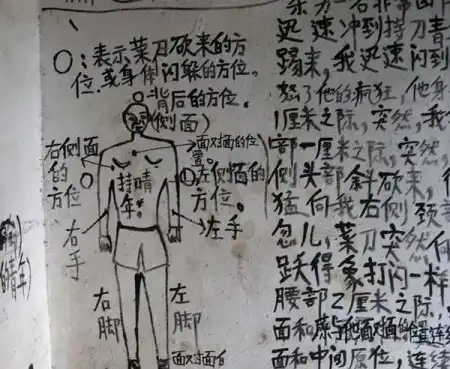 ○：表示菜刀砍来的方
位，或身体闪躲的方位。
背后的方位。
侧面）
右侧面
的
方位
面对面的位
置。
左侧面的
方位。
晴
年
右
手
左手
右
脚
左
脚
面对面
迅速冲到持刀青
踢来，我迅速闪到
怒了他的疯狂，他身
1厘米之际，突然，我
部一厘米之际，突然，
侧头部斜砍来，
猛向我右侧颈
忽儿，菜刀突然向
跃得象打闪一样
腰部2厘米之际，
面和 他面对面的位置连续
面和中间原位，连续
的青年）